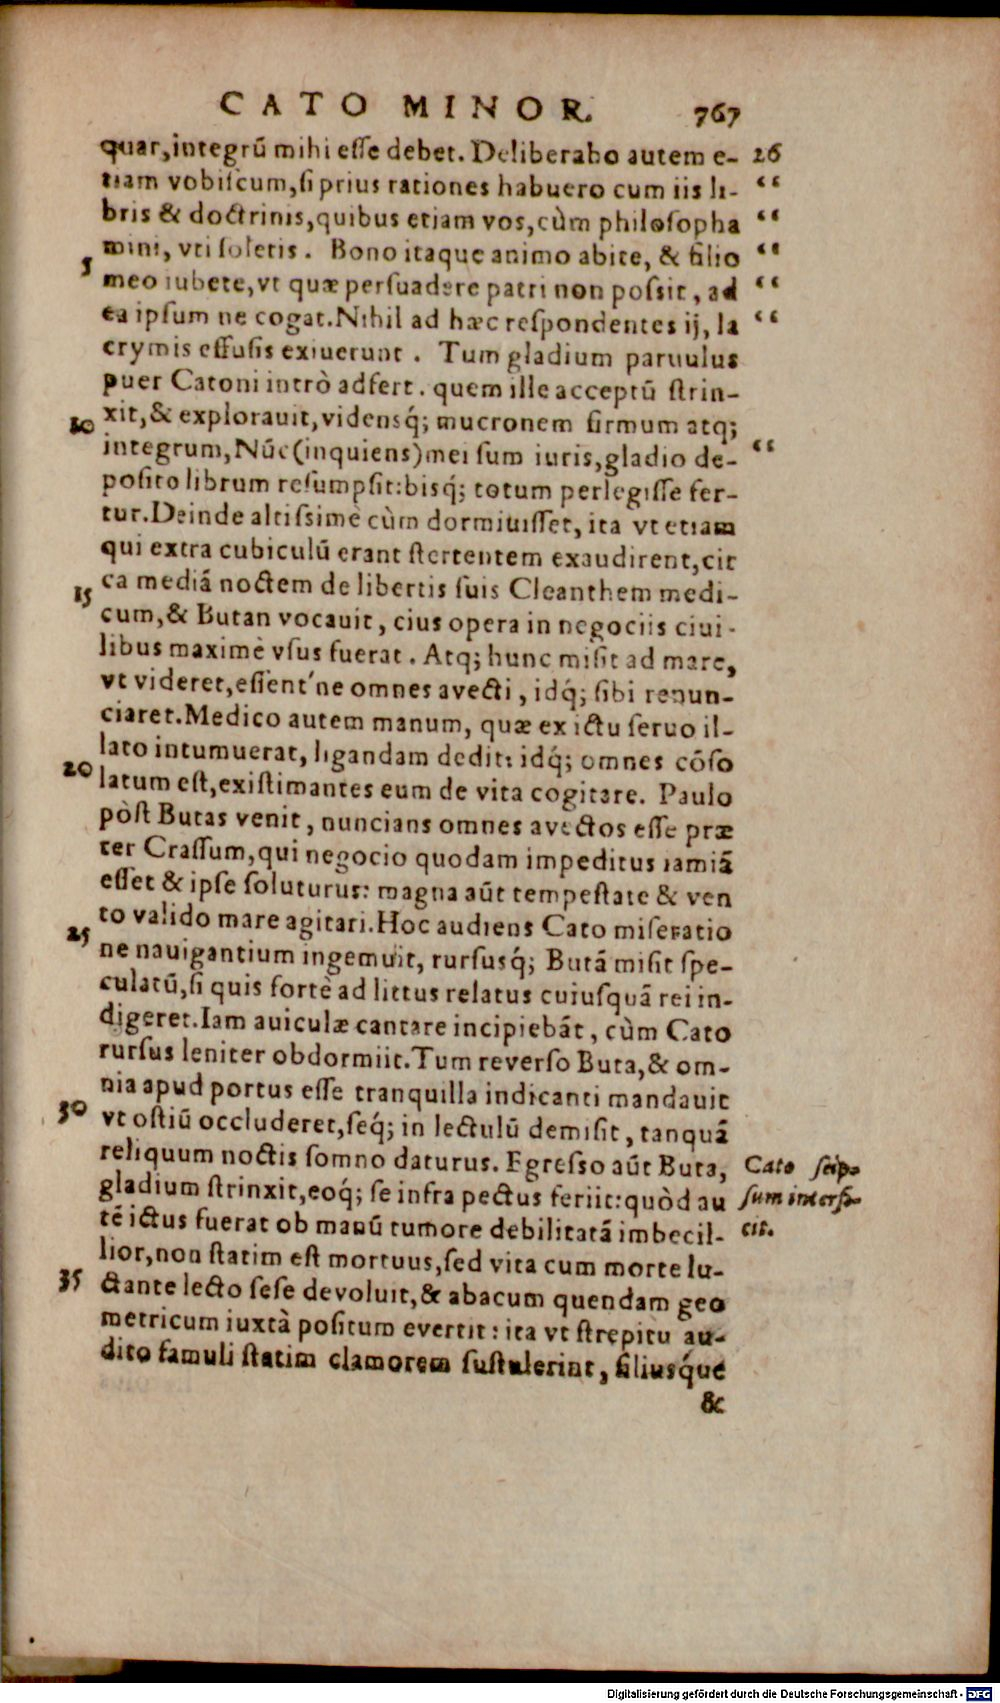 CATO MINOR. 767
quar,integrũ mihi eſſe debet. Deliberabo autem e- 26
tiam vobiſcum,ſi prius rationes habuero cum iis li- “
bris & doctrinis,quibus etiam vos,cùm philoſopha “
mini, vti ſoletis. Bono itaque animo abite, & filio “
5 meo iubete,vt quæ perſuadere patri non poſsit, ad “
ea ipſum ne cogat.Nihil ad hæc reſpondentes ij, la “
crymis effuſis exiuerunt. Tum gladium paruulus
puer Catoni intrò adfert. quem ille acceptũ ſtrin-
xit,& explorauit,vidensq́; mucronem firmum atq;
10 integrum,Nũc(inquiens)mei ſum iuris,gladio de- “
poſito librum reſumpſit:bisq́; totum perlegiſſe fer-
tur.Deinde altiſsimè cùm dormiuiſſet, ita vt etiam
qui extra cubiculũ erant ſtertentem exaudirent,cir
ca mediã noctem de libertis ſuis Cleanthem medi-
15 cum,& Butan vocauit, cius opera in negociis ciui-
libus maximè vſus fuerat. Atq; hunc miſit ad mare,
vt videret,eſſent'ne omnes avecti, idq́; ſibi renun-
ciaret.Medico autem manum, quæ ex ictu ſeruo il-
lato intumuerat, ligandam dedit: idq́; omnes cõſo
20 latum eſt,exiſtimantes eum de vita cogitare. Paulo
pòſt Butas venit, nuncians omnes avectos eſſe præ
ter Craſſum,qui negocio quodam impeditus iamiã
eſſet & ipſe ſoluturus: magna aũt tempeſtate & ven
to valido mare agitari.Hoc audiens Cato miſeratio
25 ne nauigantium ingemuit, rurſusq́; Butã miſit ſpe-
culatũ,ſi quis fortè ad littus relatus cuiuſquã rei in-
digeret.Iam auiculæ cantare incipiebãt, cùm Cato
rurſus leniter obdormiit.Tum reverſo Buta,& om-
nia apud portus eſſe tranquilla indicanti mandauit
30 vt oſtiũ occluderet,ſeq́; in lectulũ demiſit, tanquã
reliquum noctis ſomno daturus. Egreſſo aũt Buta, Cato ſeip-
gladium ſtrinxit,eoq́; ſe infra pectus feriit:quòd au ſum interfi-
tẽ ictus fuerat ob manũ tumore debilitatã imbecil- cit.
lior,non ſtatim eſt mortuus,ſed vita cum morte lu-
35 ctante lecto ſeſe devoluit,& abacum quendam geo
metricum iuxtà poſitum evertit: ita vt ſtrepitu au-
dito famuli ſtatim clamorem ſuſtulerint, filiusq́ue
&
Digitalisierung gefördert durch die Deutsche Forschungsgemeinschaft - DFG